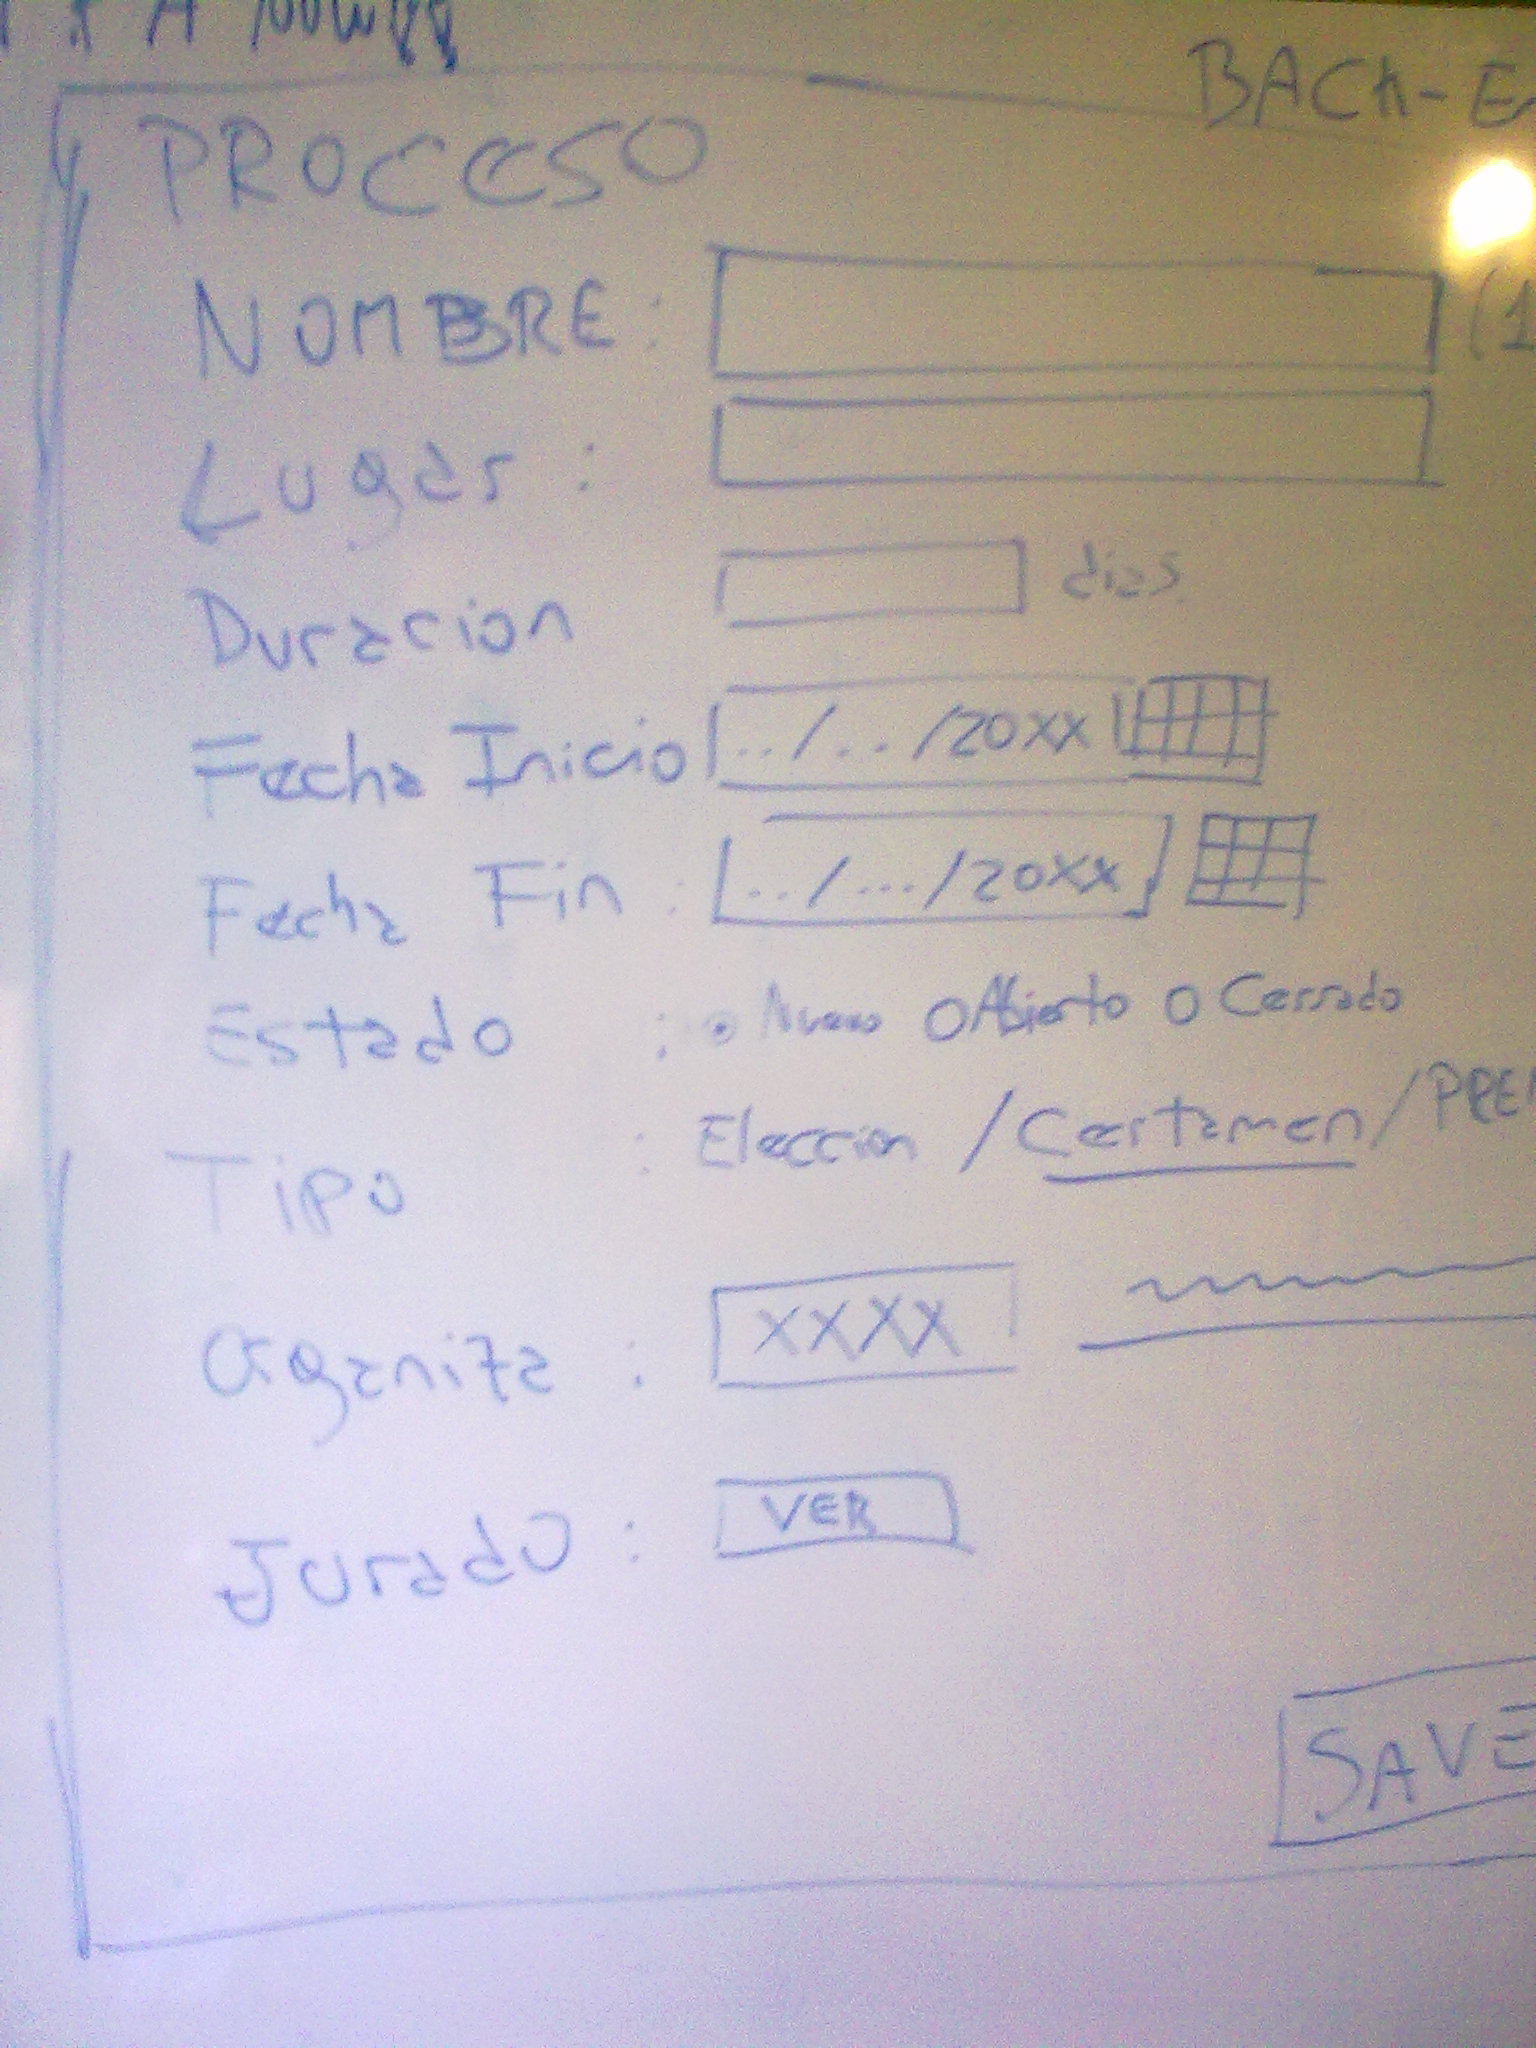 BACK-E
PROCESO
NOMBRE : (1
Lugar :
Duracion dias
Fecha Inicio ../../20xx
Fecha Fin : ../.../20xx
Estado : Nuevo Abierto Cerrado
Tipo : Eleccion /Certamen/PREM
Organiza : XXXX
Jurado : VER
SAVE